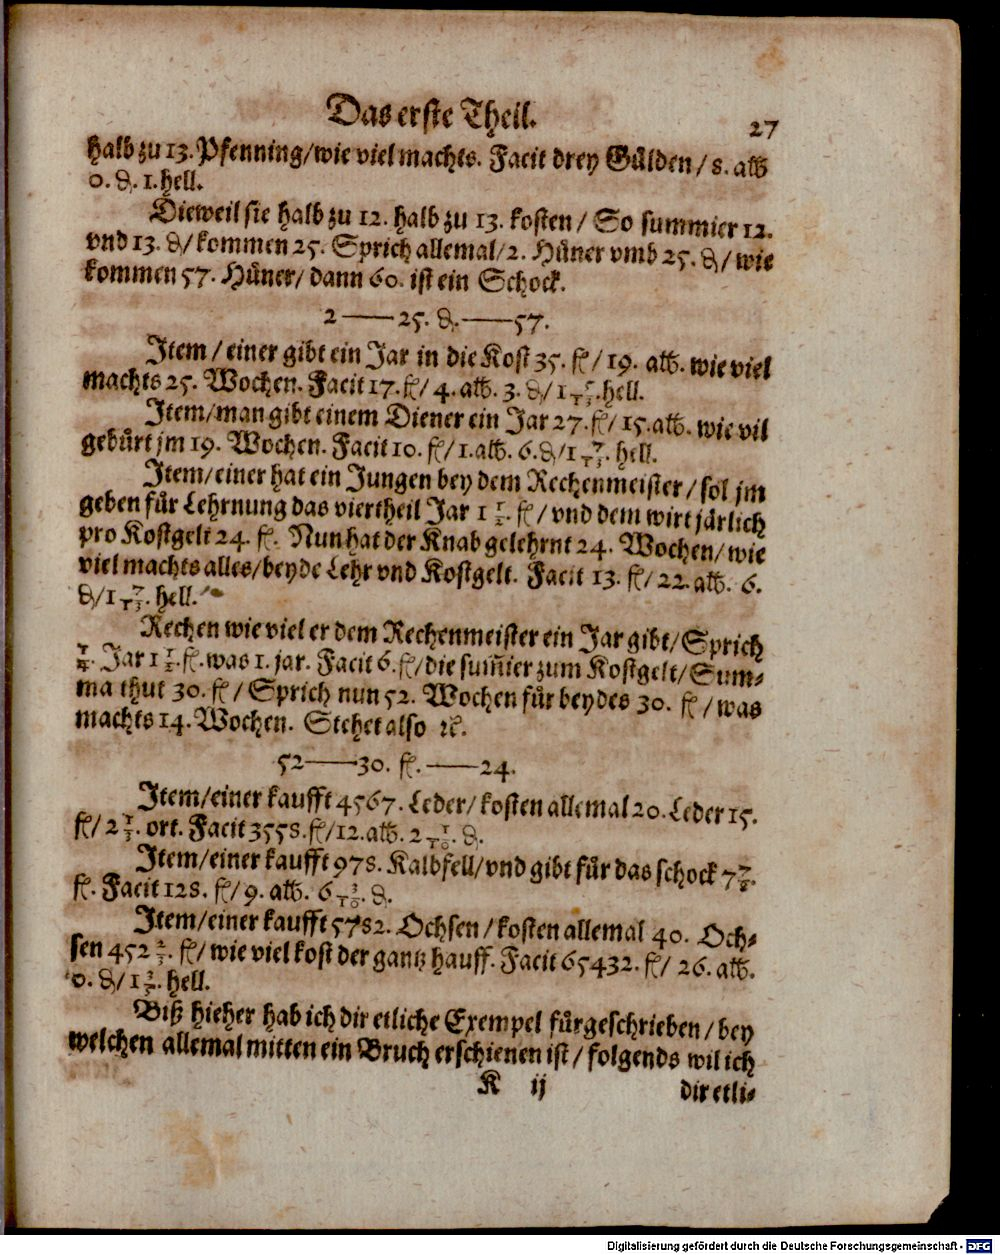 Das erste Theil. 27
halb zu 13. Pfenning/wie viel machts. Facit drey Gůlden/8. alb
0. ₰. 1. hell.
Dieweil sie halb zu 12. halb zu 13. kosten / So summier 12.
vnd 13. ₰/ kommen 25. Sprich allemal/2. Hůner vmb 25. ₰/ wie
kommen 57. Hůner/ dann 60. ist ein Schock.
2——25. ₰.——57.
Item / einer gibt ein Jar in die Kost 35. fl/ 19. alb. wie viel
machts 25. Wochen. Facit 17. fl/ 4. alb. 3. ₰/ 1 5/13. hell.
Item/man gibt einem Diener ein Jar 27. fl/ 15. alb. wie vil
gebůrt jm 19. Wochen. Facit 10. fl/ 1. alb. 6. ₰/1 7/13. hell.
Item/einer hat ein Jungen bey dem Rechenmeister/ sol jm
geben fůr Lehrnung das viertheil Jar 1 1/2. fl/ vnd dem wirt jårlich
pro Kostgelt 24. fl. Nun hat der Knab gelehrnt 24. Wochen/ wie
viel machts alles/beyde Lehr vnd Kostgelt. Facit 13. fl/ 22. alb. 6.
₰/1 7/13. hell.
Rechen wie viel er dem Rechenmeister ein Jar gibt/Sprich
1/4. Jar 1 1/2. fl. was 1. jar. Facit 6. fl/die sum̄ier zum Kostgelt/Sum⸗
ma thut 30. fl/ Sprich nun 52. Wochen fůr beydes 30. fl/ was
machts 14. Wochen. Stehet also ꝛc.
52——30. fl.——24.
Item/einer kaufft 4567. Leder/ kosten allemal 20. Leder 15.
fl/ 2 1/3. ort. Facit 3558. fl/12. alb. 2 1/10. ₰.
Item/einer kaufft 978. Kalbfell/vnd gibt fůr das schock 7 7/8.
fl. Facit 128. fl/ 9. alb. 6 3/10. ₰.
Item/einer kaufft 5782. Ochsen / kosten allemal 40. Och⸗
sen 452 2/3. fl/ wie viel kost der gantz hauff. Facit 65432. fl/ 26. alb.
0. ₰/ 1 3/5. hell.
Biß hieher hab ich dir etliche Exempel fůrgeschrieben / bey
welchen allemal mitten ein Bruch erschienen ist / folgends wil ich
K ij dir etli⸗
Digitalisierung gefördert durch die Deutsche Forschungsgemeinschaft - DFG